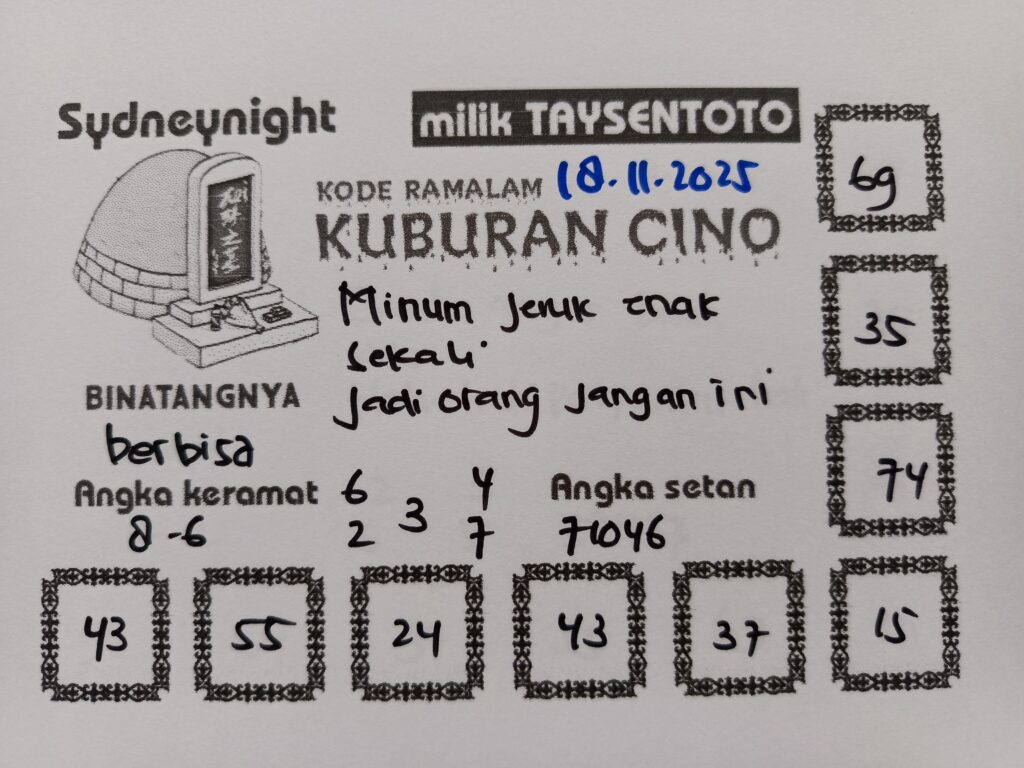 Sydneynight
milik TAYSENTOTO
KODE RAMALAM 18.11.2025
KUBURAN CINO
Minum jeruk enak
sekali
Jadi orang jangan iri
BINATANGNYA
berbisa
Angka keramat
8-6
6 4
3
2 7
Angka setan
71046
69
35
74
43 55 24 43 37 15